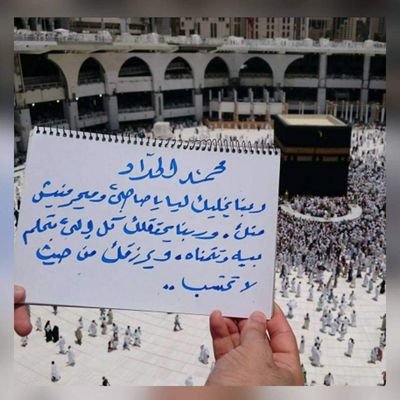 محمد الحداد
ربنا يخليك ليا يا صاحبى وميحرمنيش
منك. وربنا يحققلك كل اللى بتحلم
بيه وتتمناه. ويرزقك من حيث
لا تحتسب ..